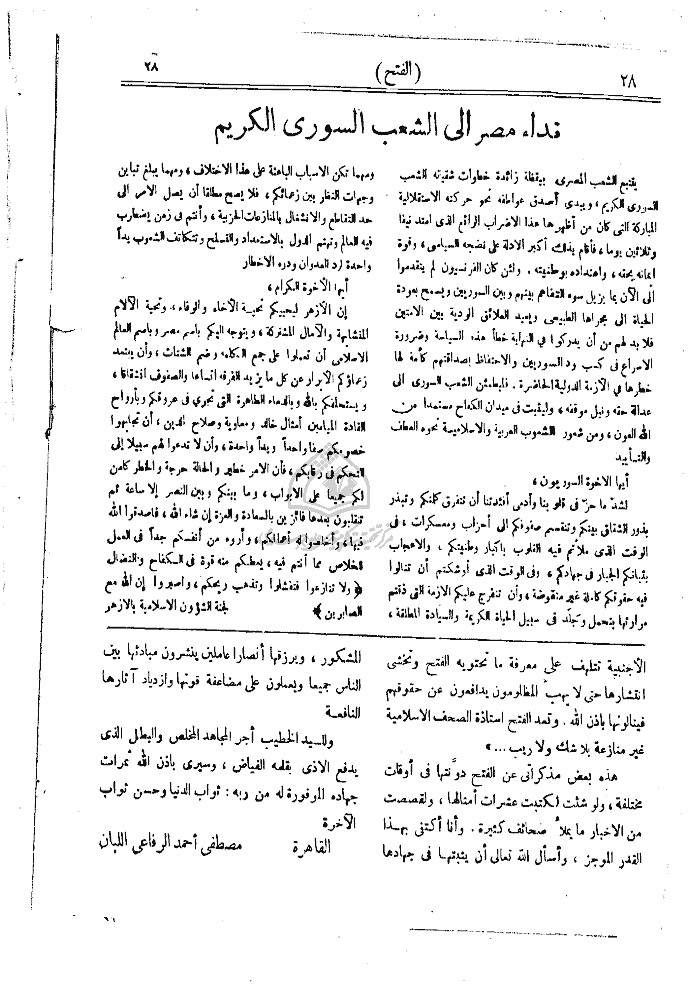 ٢٨
(الفتح)
٢٨
نداء مصر الى الشعب السورى الكريم
يتتبع الشعب المصرى بيقظة زائدة خطوات شقيقه الشعب
السورى الكريم ، ويبدى أصدق عواطفه نحو حركته الاستقلالية
المباركة التى كان من أظهرها هذا الاضراب الرائع الذى امتد نيفا
وثلاثين يوما ، فأقام بذلك أكبر الادلة على نضجه السياسى ، وقوة
ايمانه بحقه ، واعتداده بوطنيته . ولئن كان الفرنسيون لم يتقدموا
الى الآن بما يزيل سوء التفاهم بينهم وبين السوريين ويسمح بعودة
الحياة الى مجراها الطبيعى ويعيد العلائق الودية بين الامتين
فلا بد لهم من أن يدركوا فى النهاية خطأ هذه السياسة وضرورة
الاسراع فى كسب ود السوريين والاحتفاظ بصداقتهم كأمة لها
خطرها فى الأزمة الدولية الحاضرة . فليطمئن الشعب السورى الى
عدالة حقه ونبل موقفه ، وليثبت فى ميدان الكفاح مستمدا من
الله العون ، ومن شعور الشعوب العربية والاسلامية نحوه العطف
والتأييد
أيها الاخوة السوريون ،
لشد ما حز فى قلوبنا وأدمى أفئدتنا أن تتفرق كلمتكم وتبذر
بذور الشقاق بينكم وتنقسم صفوفكم الى أحزاب ومعسكرات ، فى
الوقت الذى ملأتم فيه القلوب باكبار وطنيتكم ، والاعجاب
بتفانيكم الجبار فى جهادكم ، وفى الوقت الذى أوشكتم أن تنالوا
فيه حقوقكم كاملة غير منقوضة ، وأن تنفرج عليكم الازمة التى ذقتم
مرارتها بتحمل وجلد فى سبيل الحياة الكريمة والسيادة المطلقة ،
ومهما تكن الاسباب الباعثة على هذا الاختلاف ، ومهما يبلغ تباين
وجهات النظر بين زعمائكم ، فلا يصح مطلقا أن يصل الامر الى
حد التقاطع والانشغال بالمنازعات الحزبية ، وأنتم فى زمن يضطرب
فيه العالم وتهتم الدول بالاستعداد والتسلح وتتكاتف الشعوب يداً
واحدة لرد العدوان ودرء الاخطار
أيها الأخوة الكرام ،
إن الأزهر ليحييكم تحية الأخاء والوفاء ، وتحية الآلام
المتشابهة والآمال المشتركة ، ويتوجه اليكم باسم مصر وباسم العالم
الاسلامى أن تعملوا على جمع الكلمة وضم الشتات ، وأن يبتعد
زعماؤكم الأبرار عن كل ما يزيد الفرقة اتساعا والصفوف انشقاقا ،
ويستحلفكم بالله وبالدماء الطاهرة التى تجرى فى عروقكم وبأرواح
القادة الميامين أمثال خالد ومعاوية وصلاح الدين ، أن تجابهوا
خصومكم صفا واحداً ويداً واحدة ، وأن لا تدعوا لهم سبيلا إلى
التحكم فى رقابكم ، فأن الامر خطير والحالة حرجة والخطر كامن
لكم جميعا على الابواب ، وما بينكم وبين النصر إلا ساعة ثم
تنقلبون بعدها فائزين بالسعادة والعزة إن شاء الله ، فاصدقوا الله
فيها ، وأخلصوا له أعمالكم ، وأروه من أنفسكم جداً فى العمل
للخلاص مما أنتم فيه ، يعطكم منه قوة فى الكفاح والنضال
﴿ ولا تنازعوا فتفشلوا وتذهب ريحكم ، واصبروا إن الله مع
الصابرين ﴾ لجنة الشؤون الاسلامية بالازهر
الأجنبية تتلهف على معرفة ما تحتويه الفتح وتخشى
انتشارها حتى لا يهب المظلومون يدافعون عن حقوقهم
فينالونها باذن الله . وتعد الفتح استاذة الصحف الاسلامية
غير منازعة بلا شك ولا ريب ... »
هذه بعض مذكراتى عن الفتح دونتها فى أوقات
مختلفة ، ولو شئت لكتبت عشرات أمثالها ، ولقصصت
من الاخبار ما يملأ صحائف كثيرة . وأنا أكتفى بهذا
القدر الموجز ، وأسأل الله تعالى أن يثبتها فى جهادها
المشكور ، ويرزقها أنصارا عاملين ينشرون مبادئها بين
الناس جميعا ويعملون على مضاعفة قوتها وازدياد آثارها
النافعة
وللسيد الخطيب أجر المجاهد المخلص والبطل الذى
يدفع الاذى بقلمه الفياض ، وسيرى باذن الله ثمرات
جهاده الموفورة له من ربه : ثواب الدنيا وحسن ثواب
الآخرة
القاهرة مصطفى أحمد الرفاعى اللبان